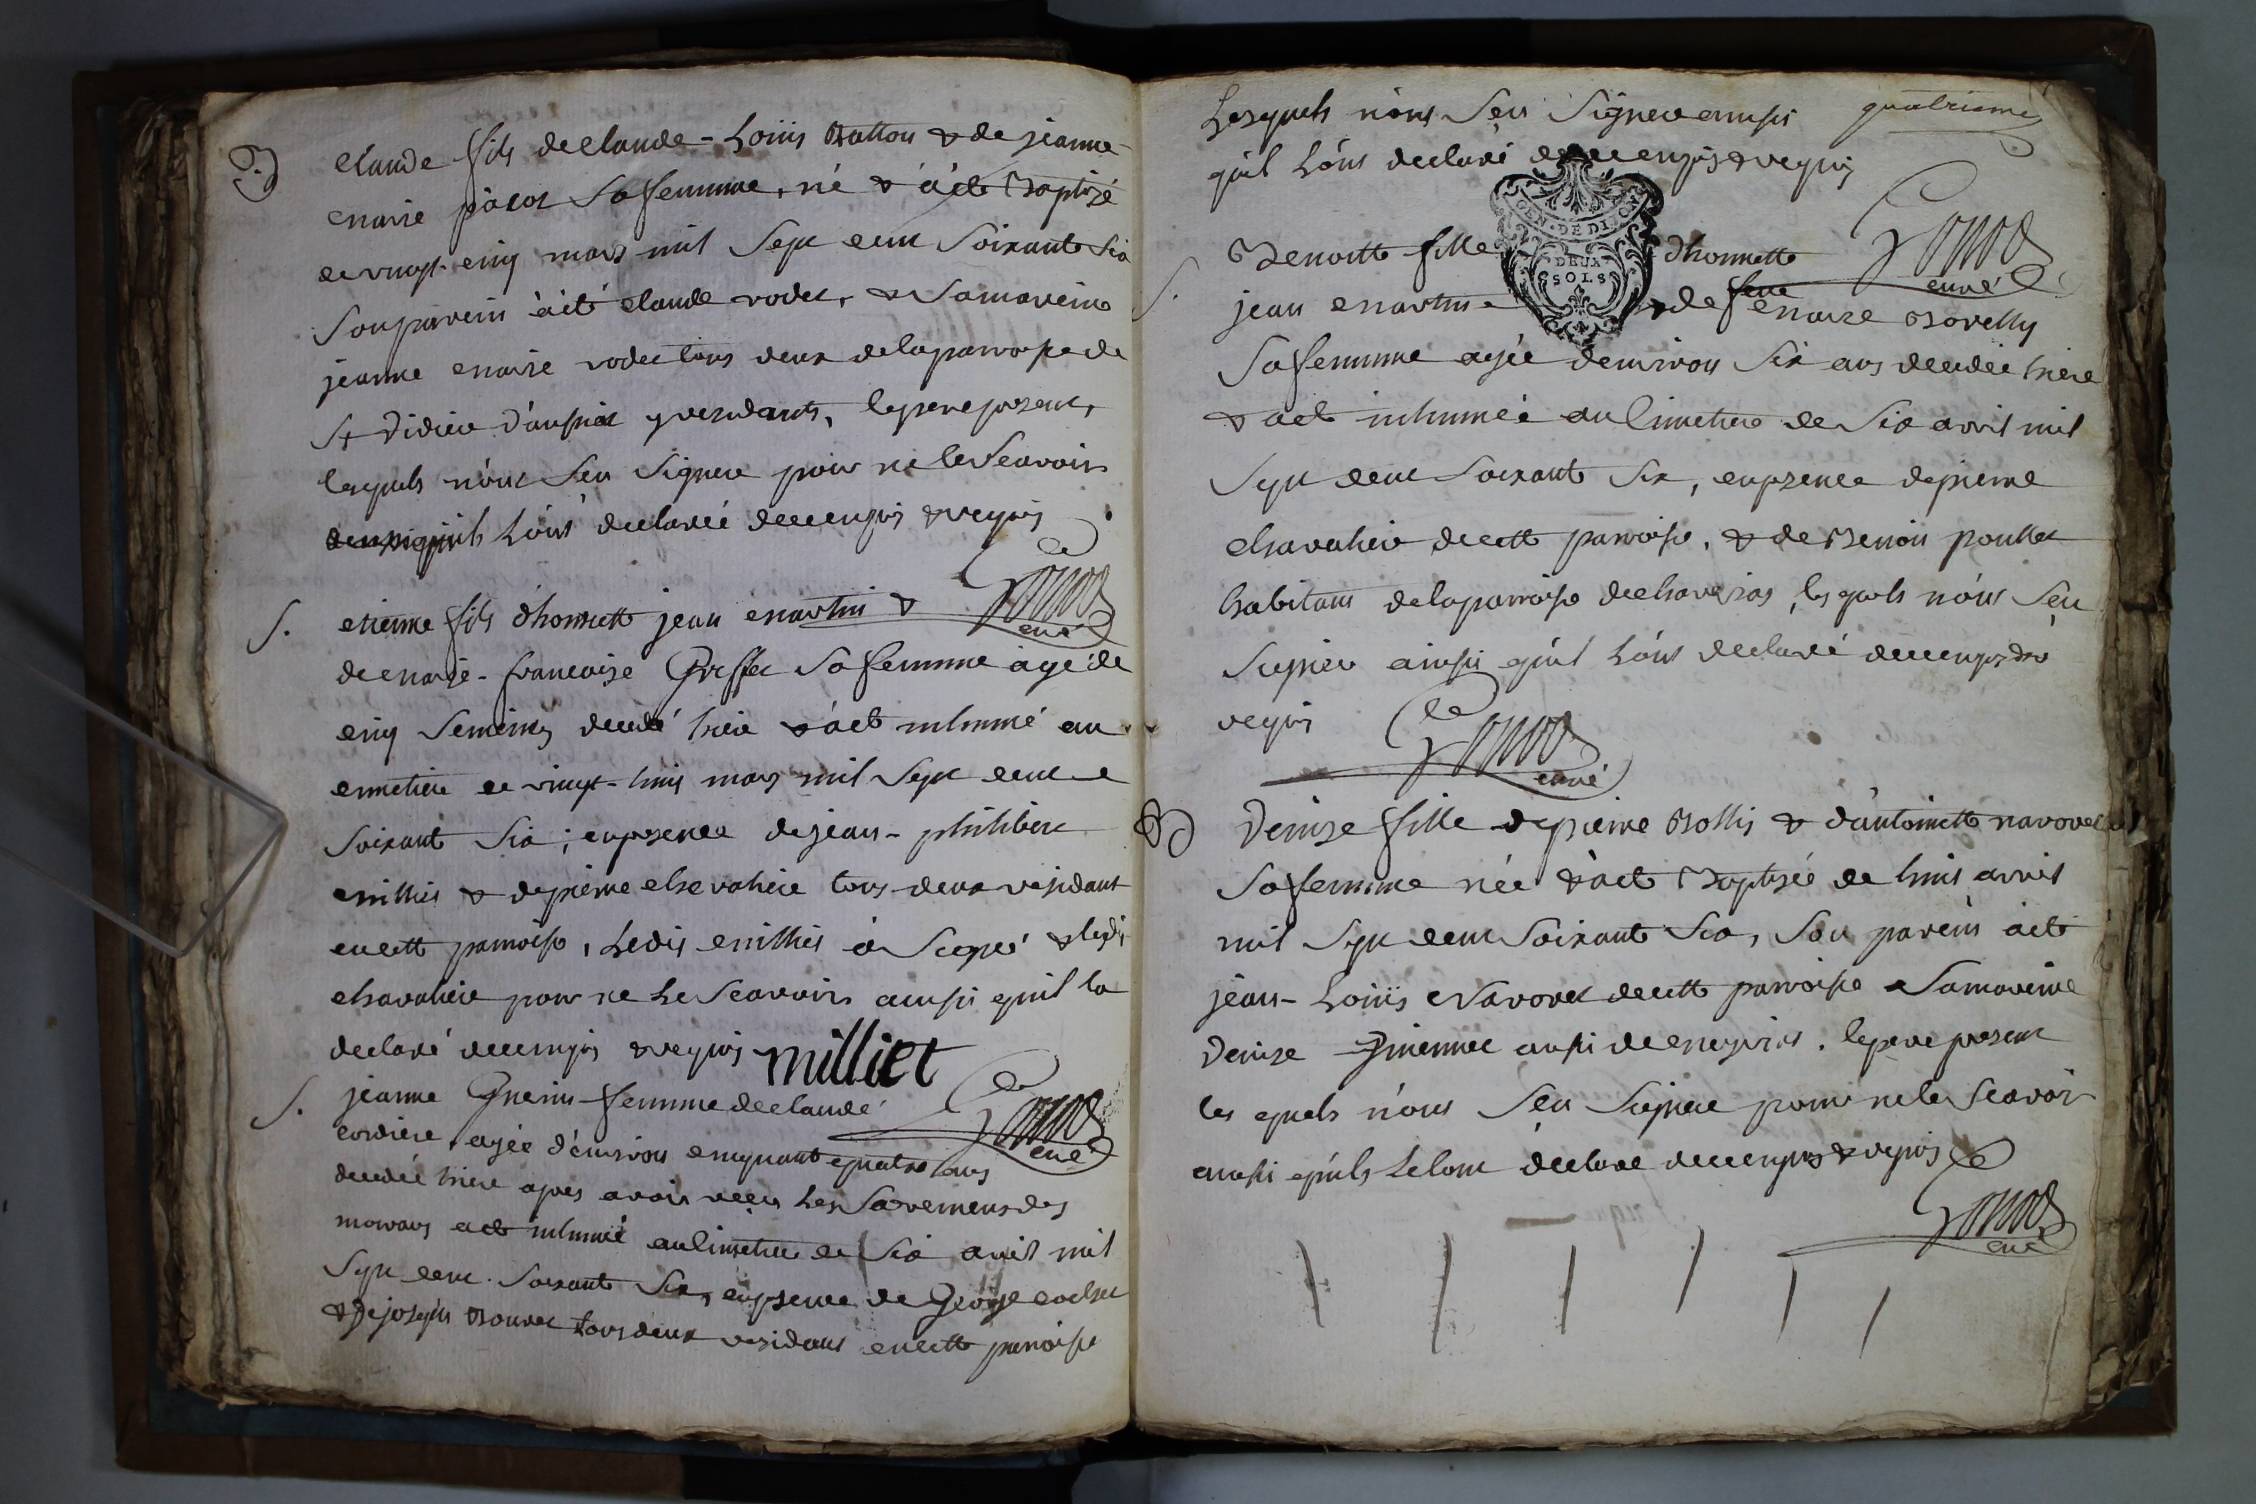 B.
Claude fils de Claude-Loüis Ballon & de jeanne
marie pacot Sa femme, né & a êté Baptisé
ce vingt-cinq mars mil Sept cent Soixante Six
Son parein a êté Claude rodet, & Samareine
jeanne marie rodet tous deux de la paroisse de
St Didier d'aussiat y residants, le pere present,
lesquels n'ont Seu Signer pour ne le Scavoir
qu'ils L'ont declaré de ce enquis & requis
Gonod
curé
S.
etienne fils d'honnette jean martin &
de marie-francoise Greffet Sa femme agé de
cinq Semeines decedé hier & a êté inhumé au
cimetiere ce vingt-huit mars mil Sept cent
Soixante Six; en presence de jean-philibert
milliet & de pierre chevalier tous deux residant
en cette paroisse, Ledit milliet à Signé & ledit
chavalier pour ne Le Scavoir ainssi qu'il la
declaré de ce enquis & requis milliet
Gonod
curé
S.
jeanne Guerin femme de claude
cordier, agée d'environ cinquante quatre ans
decedée hier apres avoir recu Les Sacremens des
mourans a eté inhumée au Cimetiere ce Six avril mil
Sept cent Soixante Six, en presence de George cochet
& de joseph Bouvet tous deux residans en cette paroisse
Lesquels n'ont Seu Signer ainssi
quatrieme
qu'il L'ont declaré de ce enquis & requis
GEN. DE DIJON
DEUX
SOLS
Gonod
curé
S.
Benoitte fille d'honnette
jean martin & de feue marie Borelly
Sa femme agée d'environ Six ans decedée hier
& a eté inhumée au Cimetiere ce Six avril mil
Sept cent Soixante Six, en presence de pierre
chavalier de cette paroisse, & de Benoit poullet
habitant de la paroisse de chaveiras, lesquels n'ont Seu
Signer ainssi qu'il L'ont declaré de ce enquis &
requis
Gonod
curé
B
Denize fille de pierre Bollis & d'antoinette navoret
Sa femme née & a eté Baptisée ce huit avril
mil Sept cent Soixante Six, Son parein a eté
jean-Loüis Navoret de cette paroisse & Samareine
Denize aussi de . le pere present
les quels n'ont Seu Signer pour ne le Scavoir
ainssi qu'ils Le lont declaré de ce enquis & requis
Gonod
curé